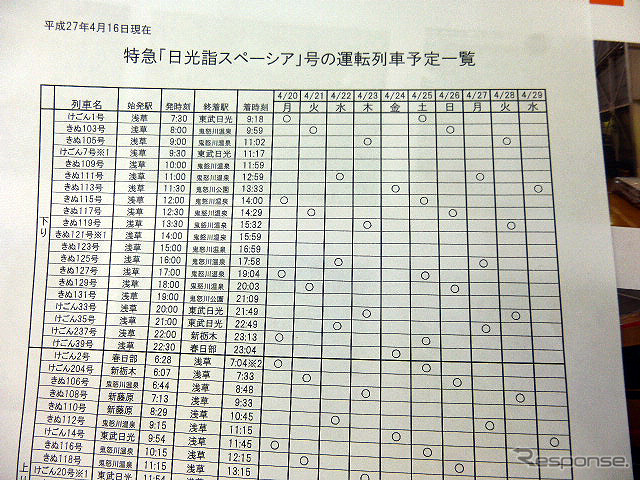 平成27年4月16日現在
特急「日光詣スペーシア」号の運転列車予定一覧
4/20 4/21 4/22 4/23 4/24 4/25 4/26 4/27 4/28 4/29
列車名 始発駅 発時刻 終着駅 着時刻 月 火 水 木 金 土 日 月 火 水
下り
けごん1号 浅草 7:30 東武日光 9:18
きぬ103号 浅草 8:00 鬼怒川温泉 9:59
きぬ105号 浅草 9:00 鬼怒川温泉 11:02
けごん7号※1 浅草 9:30 東武日光 11:17
きぬ109号 浅草 10:00 鬼怒川温泉 11:59
きぬ111号 浅草 11:00 鬼怒川温泉 12:59
きぬ113号 浅草 11:30 鬼怒川公園 13:33
きぬ115号 浅草 12:00 鬼怒川温泉 14:00
きぬ117号 浅草 12:30 鬼怒川温泉 14:29
きぬ119号 浅草 13:30 鬼怒川温泉 15:32
きぬ121号※1 浅草 14:00 鬼怒川温泉 15:59
きぬ123号 浅草 15:00 鬼怒川温泉 16:59
きぬ125号 浅草 16:00 鬼怒川温泉 17:58
きぬ127号 浅草 17:00 鬼怒川温泉 19:04
きぬ129号 浅草 18:00 鬼怒川温泉 20:03
きぬ131号 浅草 19:00 鬼怒川公園 21:09
けごん33号 浅草 20:00 東武日光 21:49
けごん35号 浅草 21:00 東武日光 22:49
けごん237号 浅草 22:00 新栃木 23:13
けごん39号 浅草 22:30 春日部 23:04
けごん2号 春日部 6:28 浅草 7:04※2
けごん204号 新栃木 6:07 浅草 7:33
きぬ106号 鬼怒川温泉 6:44 浅草 8:48
きぬ108号 新藤原 7:13 浅草 9:33
きぬ110号 新藤原 8:29 浅草 10:45
きぬ112号 鬼怒川温泉 9:15 浅草 11:15
けごん14号 東武日光 9:54 浅草 11:45
きぬ116号 鬼怒川温泉 10:15 浅草 12:15
きぬ118号 鬼怒川温泉 11:15 浅草 13:15
けごん20号※1 東武日光 11:54
上り
Response.